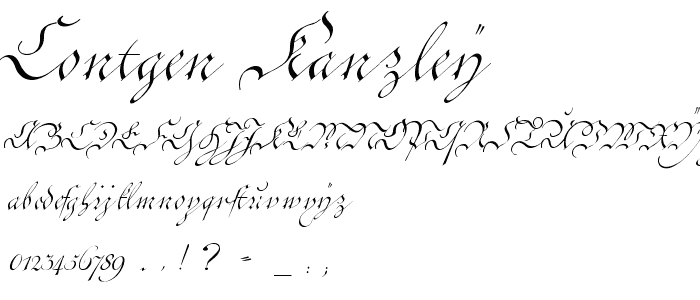 Contgen Kanzleÿ
ABCDEFGHIJKLMNOPQRSTUVWXŸ
abcdefghijklmnopqrstuvwxÿz
0123456789 . , ! ? = _ : ;